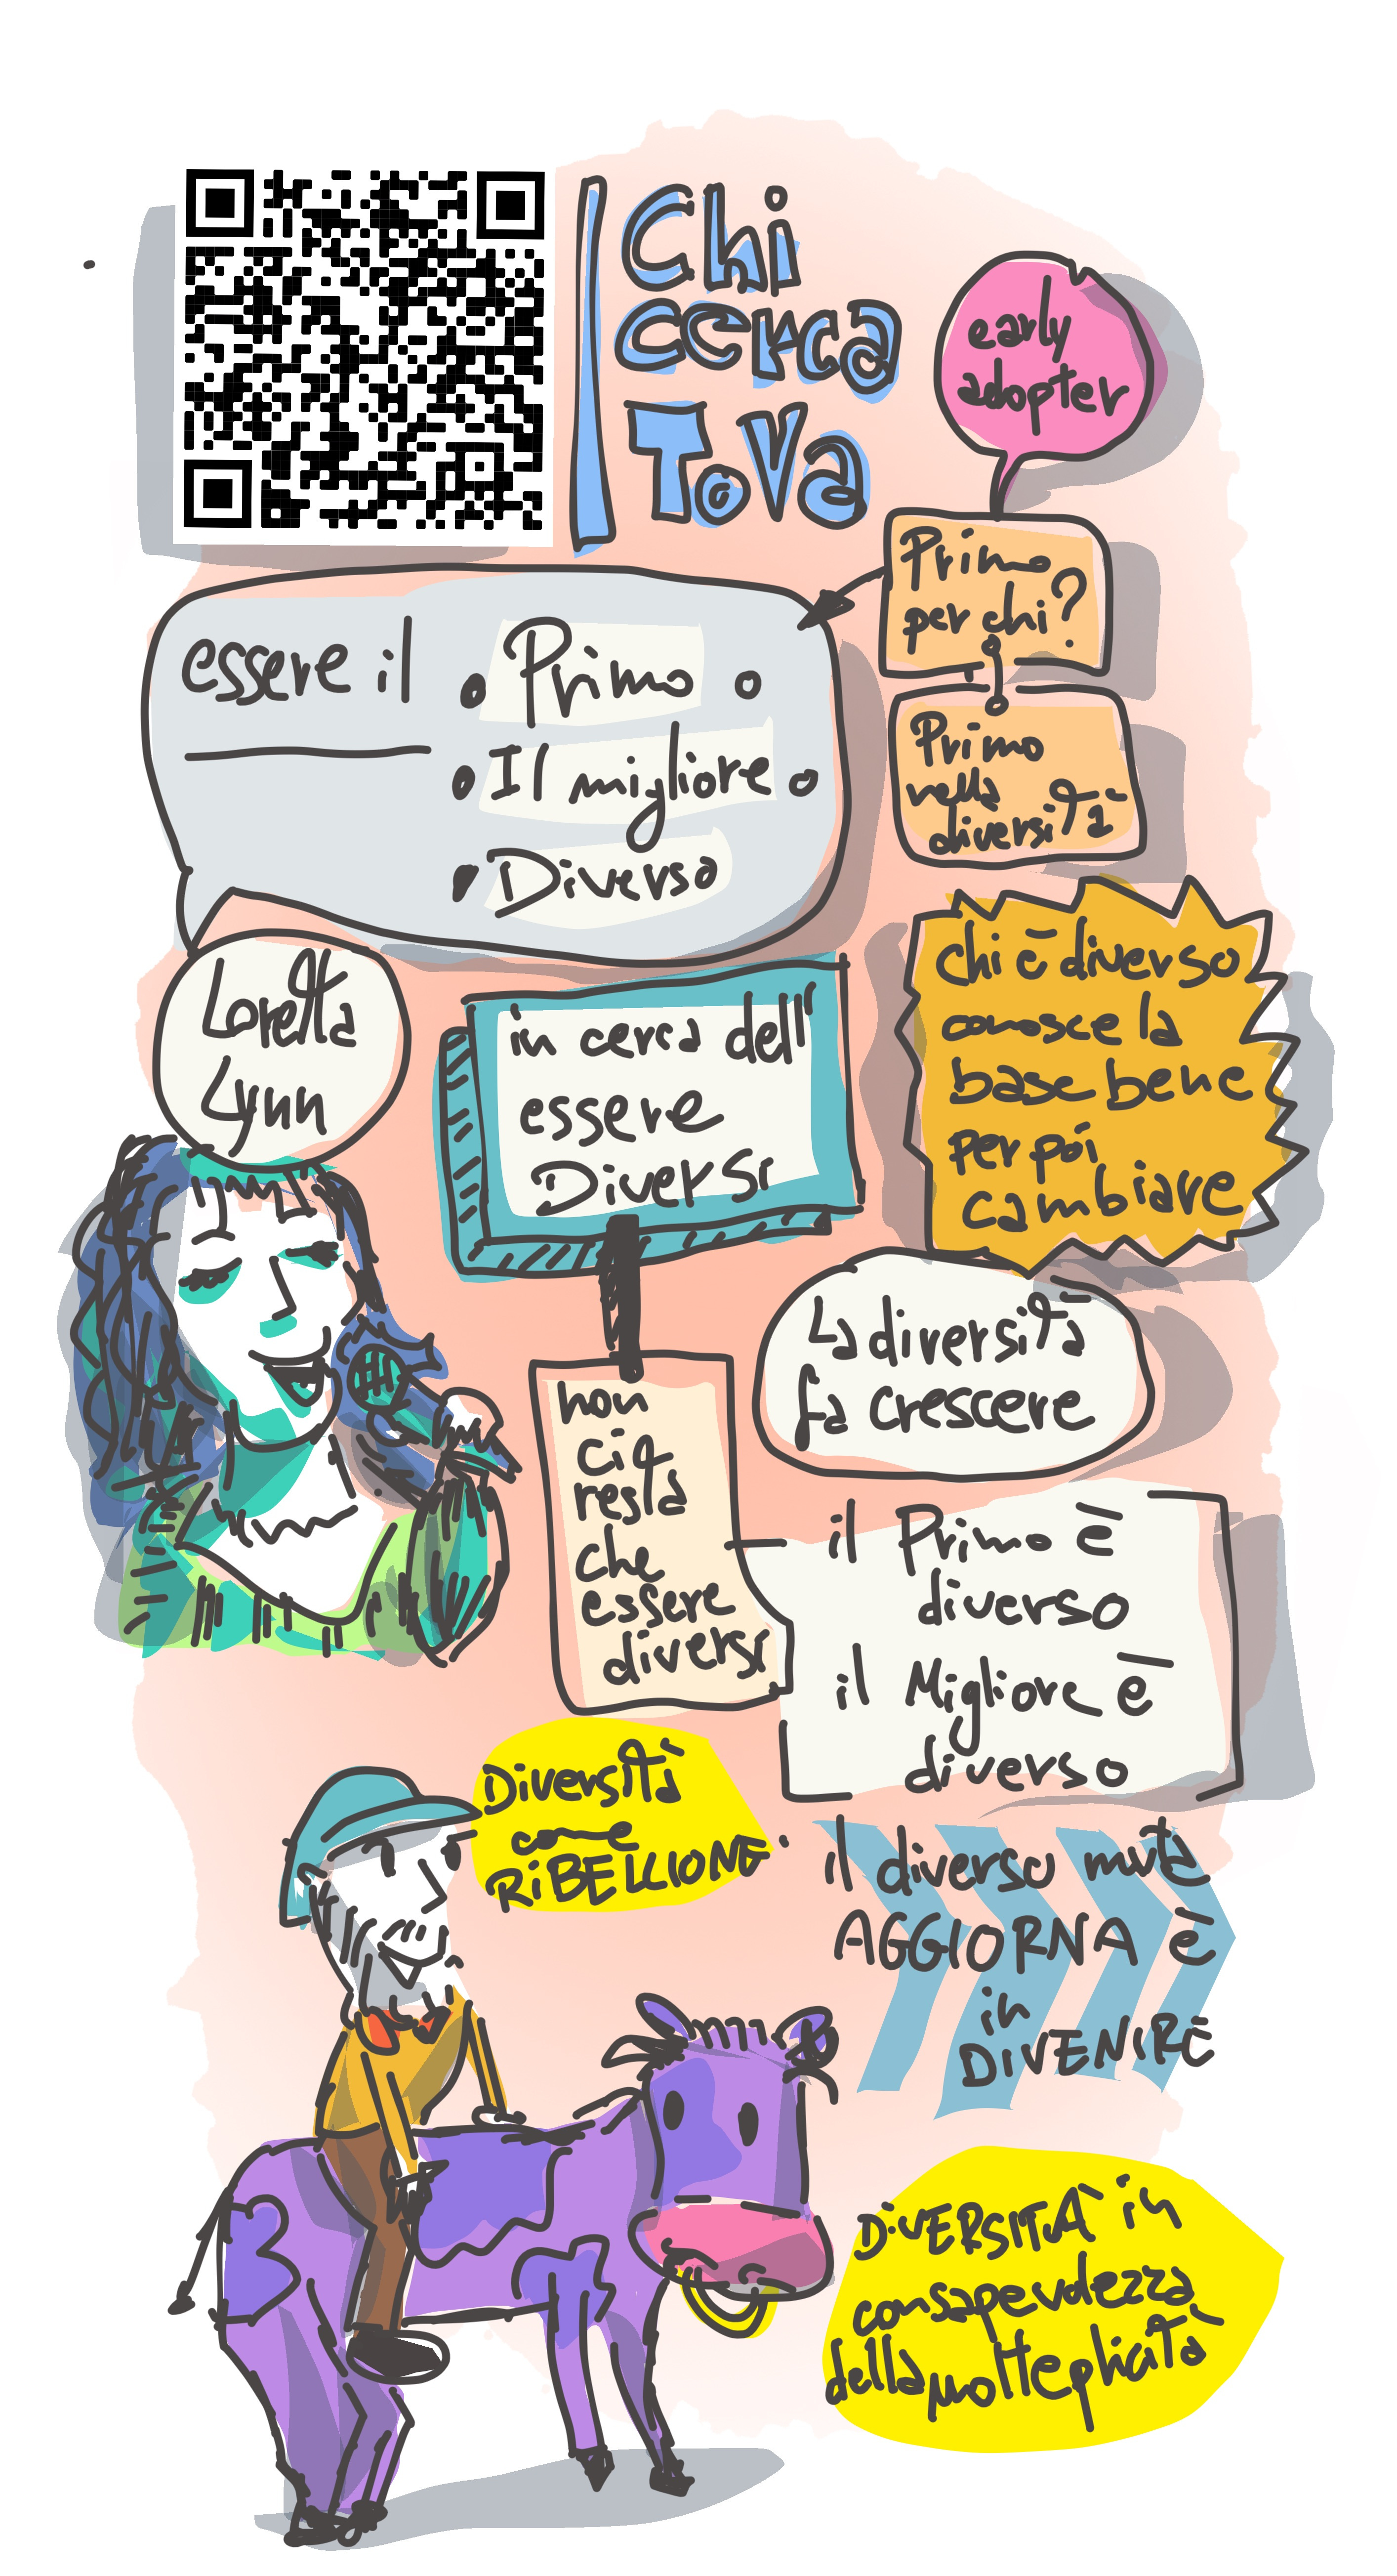 Chi
cerca
ToVa
early
adopter
Primo
per chi?
Primo
nella
diversità
essere il
• Primo o
• Il migliore o
• Diverso
Loretta
Lynn
in cerca dell'
essere
Diversi
chi è diverso
conosce la
base bene
per poi
cambiare
La diversità
fa crescere
non
ci
resta
che
essere
diversi
il Primo è
diverso
il Migliore è
diverso
Diversità
come
RiBELLIONE
il diverso muta
AGGIORNA è
in
DIVENIRE
DiVERSITÀ in
consapevolezza
della molteplicità